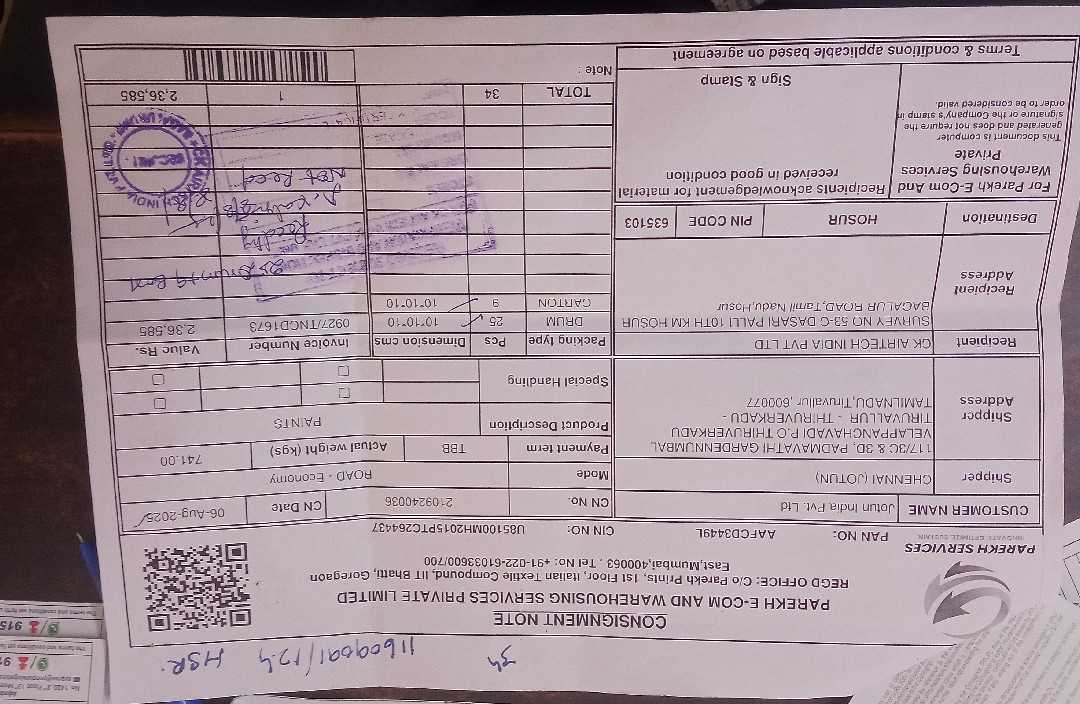 HSR
CONSIGNMENT NOTE
PAREKH E-COM AND WAREHOUSING SERVICES PRIVATE LIMITED
REGD OFFICE: C/o Parekh Prints, 1st Floor, Italian Textile Compound, IIT Bhatti, Goregaon
East, Mumbai,400063 . Tel No: +91-022-61033600/700
PAREKH SERVICES
PAN NO: AAFCD3449L CIN NO: U85100MH2015PTC264437
CUSTOMER NAME Jotun India Pvt. Ltd CN No. 2109240036 CN Date 06-Aug-2025
Shipper CHENNAI (JOTUN) Mode ROAD - Economy
Shipper Address 117/3C & 3D, PADMAVATHI GARDENNUMBAL
VELAPPANCHAVADI P.O THIRUVERKADU
TIRUVALLUR - THIRUVERKADU -
TAMILNADU,Tiruvallur ,600077
Payment term TBB Actual weight (kgs) 741.00
Product Description PAINTS
Special Handling
Recipient CK AIRTECH INDIA PVT LTD
Recipient Address SURVEY NO 53-G DASARI PALLI 10TH KM HOSUR
BAGALUR ROAD,Tamil Nadu,Hosur
Packing type Pcs Dimension cms Invoice Number Value Rs.
DRUM 25 10*10*10 0927/TNGD1673 2,36,585
CARTON 9 10*10*10
Destination HOSUR PIN CODE 635103
For Parekh E-Com And Warehousing Services Private
This document is computer generated and does not require the signature or the Company's stamp in order to be considered valid.
Recipients acknowledgement for material received in good condition
Sign & Stamp
Not Recd
TOTAL 34 1 2,36,585
Note :
Terms & conditions applicable based on agreement